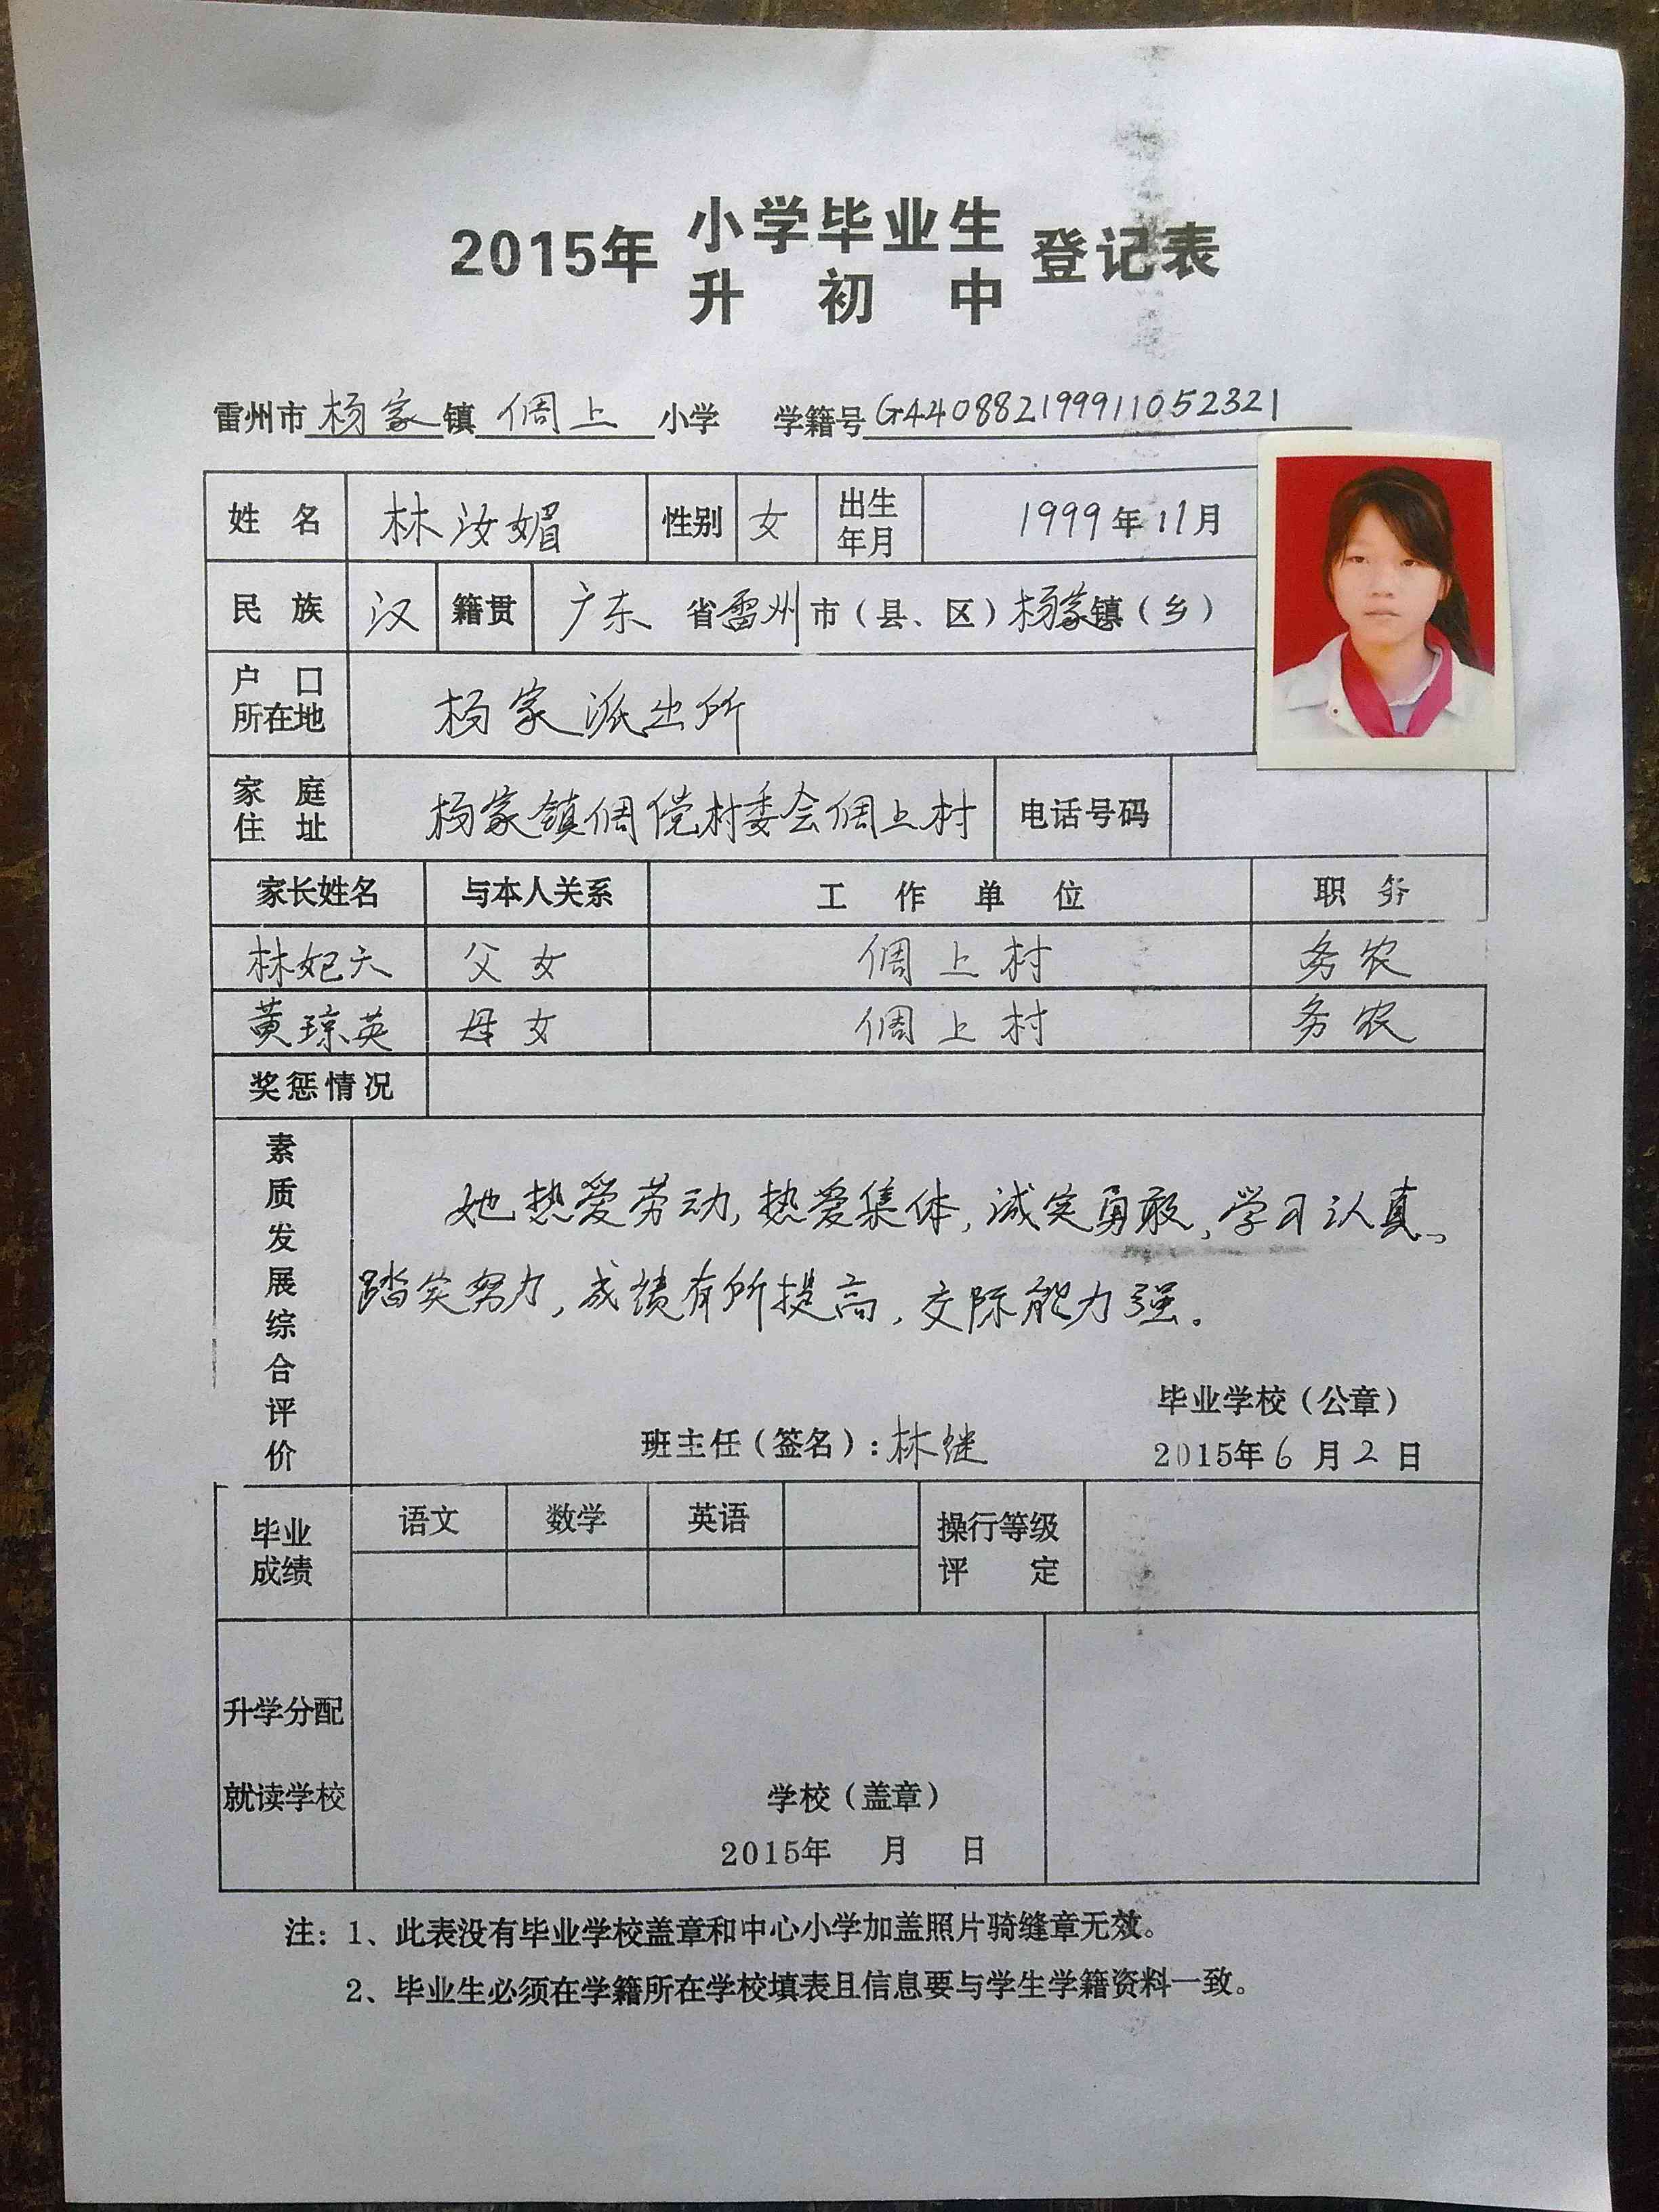 2015年 小学毕业生 登记表
升初中
雷州市杨家镇倜上小学 学籍号G440882199911052321
姓名 林汝媚 性别 女 出生年月 1999年11月
民族 汉 籍贯 广东省雷州市(县、区)杨家镇(乡)
户口所在地 杨家派出所
家庭住址 杨家镇倜傥村委会倜上村 电话号码
家长姓名 与本人关系 工作单位 职务
林妃六 父女 倜上村 务农
黄琼英 母女 倜上村 务农
奖惩情况
素质发展综合评价
她热爱劳动,热爱集体,诚实勇敢,学习认真、
踏实努力,成绩有所提高,交际能力强。
毕业学校(公章)
班主任(签名):林继 2015年6月2日
毕业成绩 语文 数学 英语 操行等级评定
升学分配
就读学校 学校(盖章)
2015年 月 日
注:1、此表没有毕业学校盖章和中心小学加盖照片骑缝章无效。
2、毕业生必须在学籍所在学校填表且信息要与学生学籍资料一致。